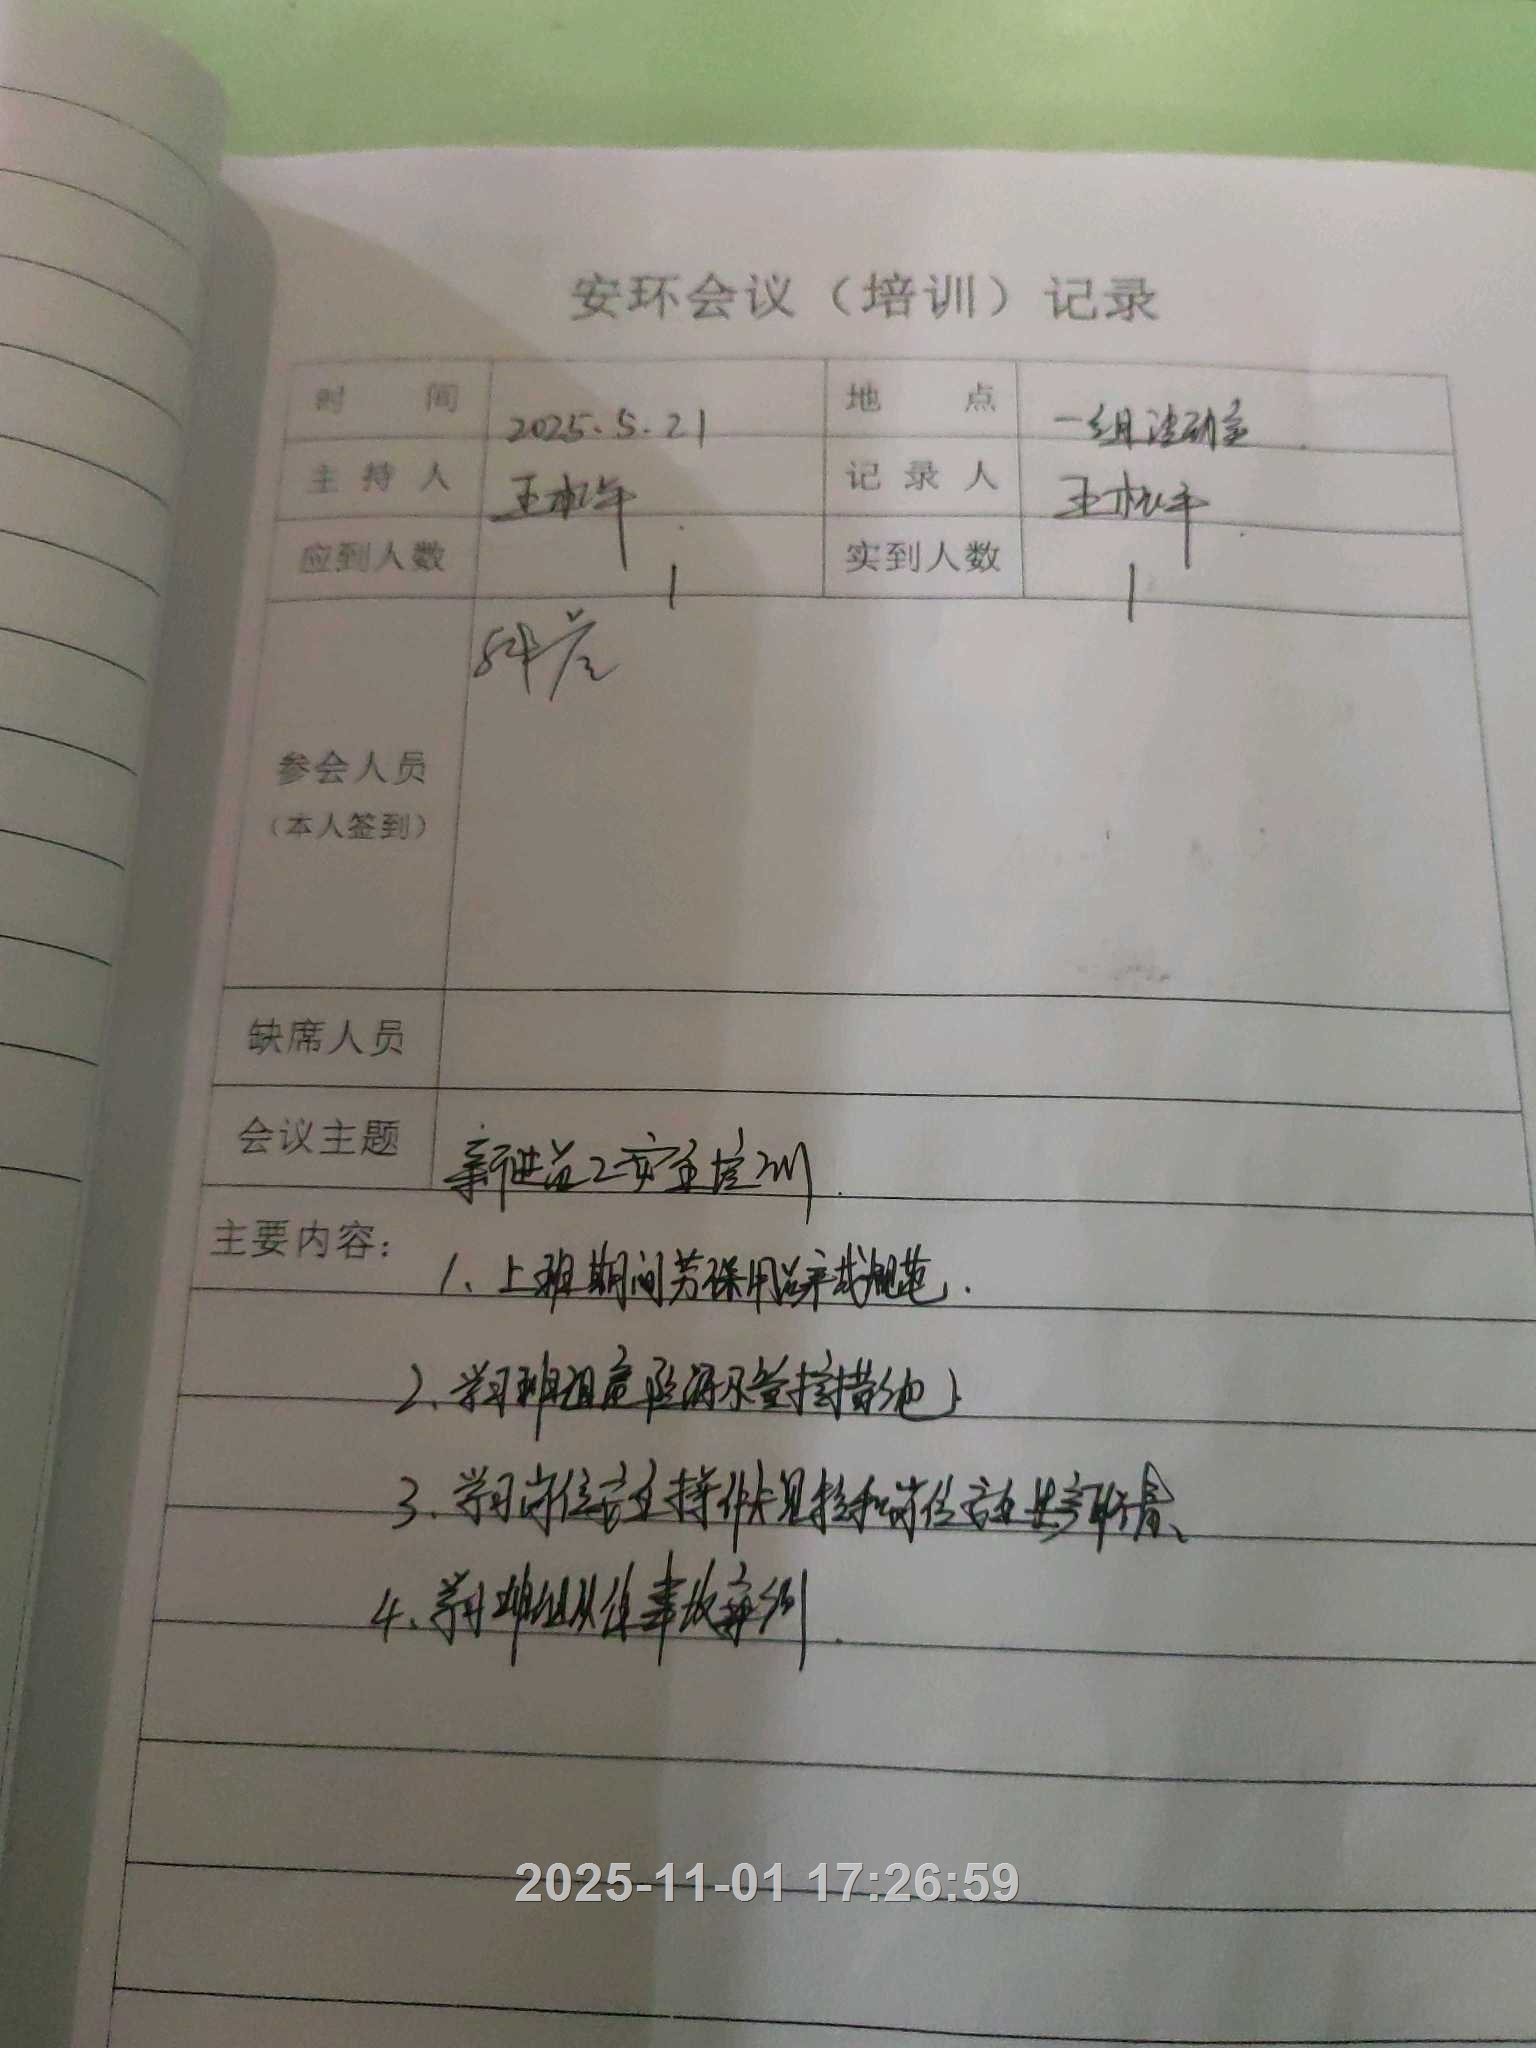 安环会议（培训）记录
时间 2025.5.21 地点 一组活动室
主持人 王松年 记录人 王松年
应到人数 1 实到人数 1
参会人员
（本人签到）
缺席人员
会议主题 新进员工安全培训.
主要内容： 1、上班期间劳保用品穿戴规范.
2.学习班组危险源及管控措施
3.学习岗位安全操作规程和岗位安全
4、学习班组以往事故案例.
2025-11-01 17:26:59